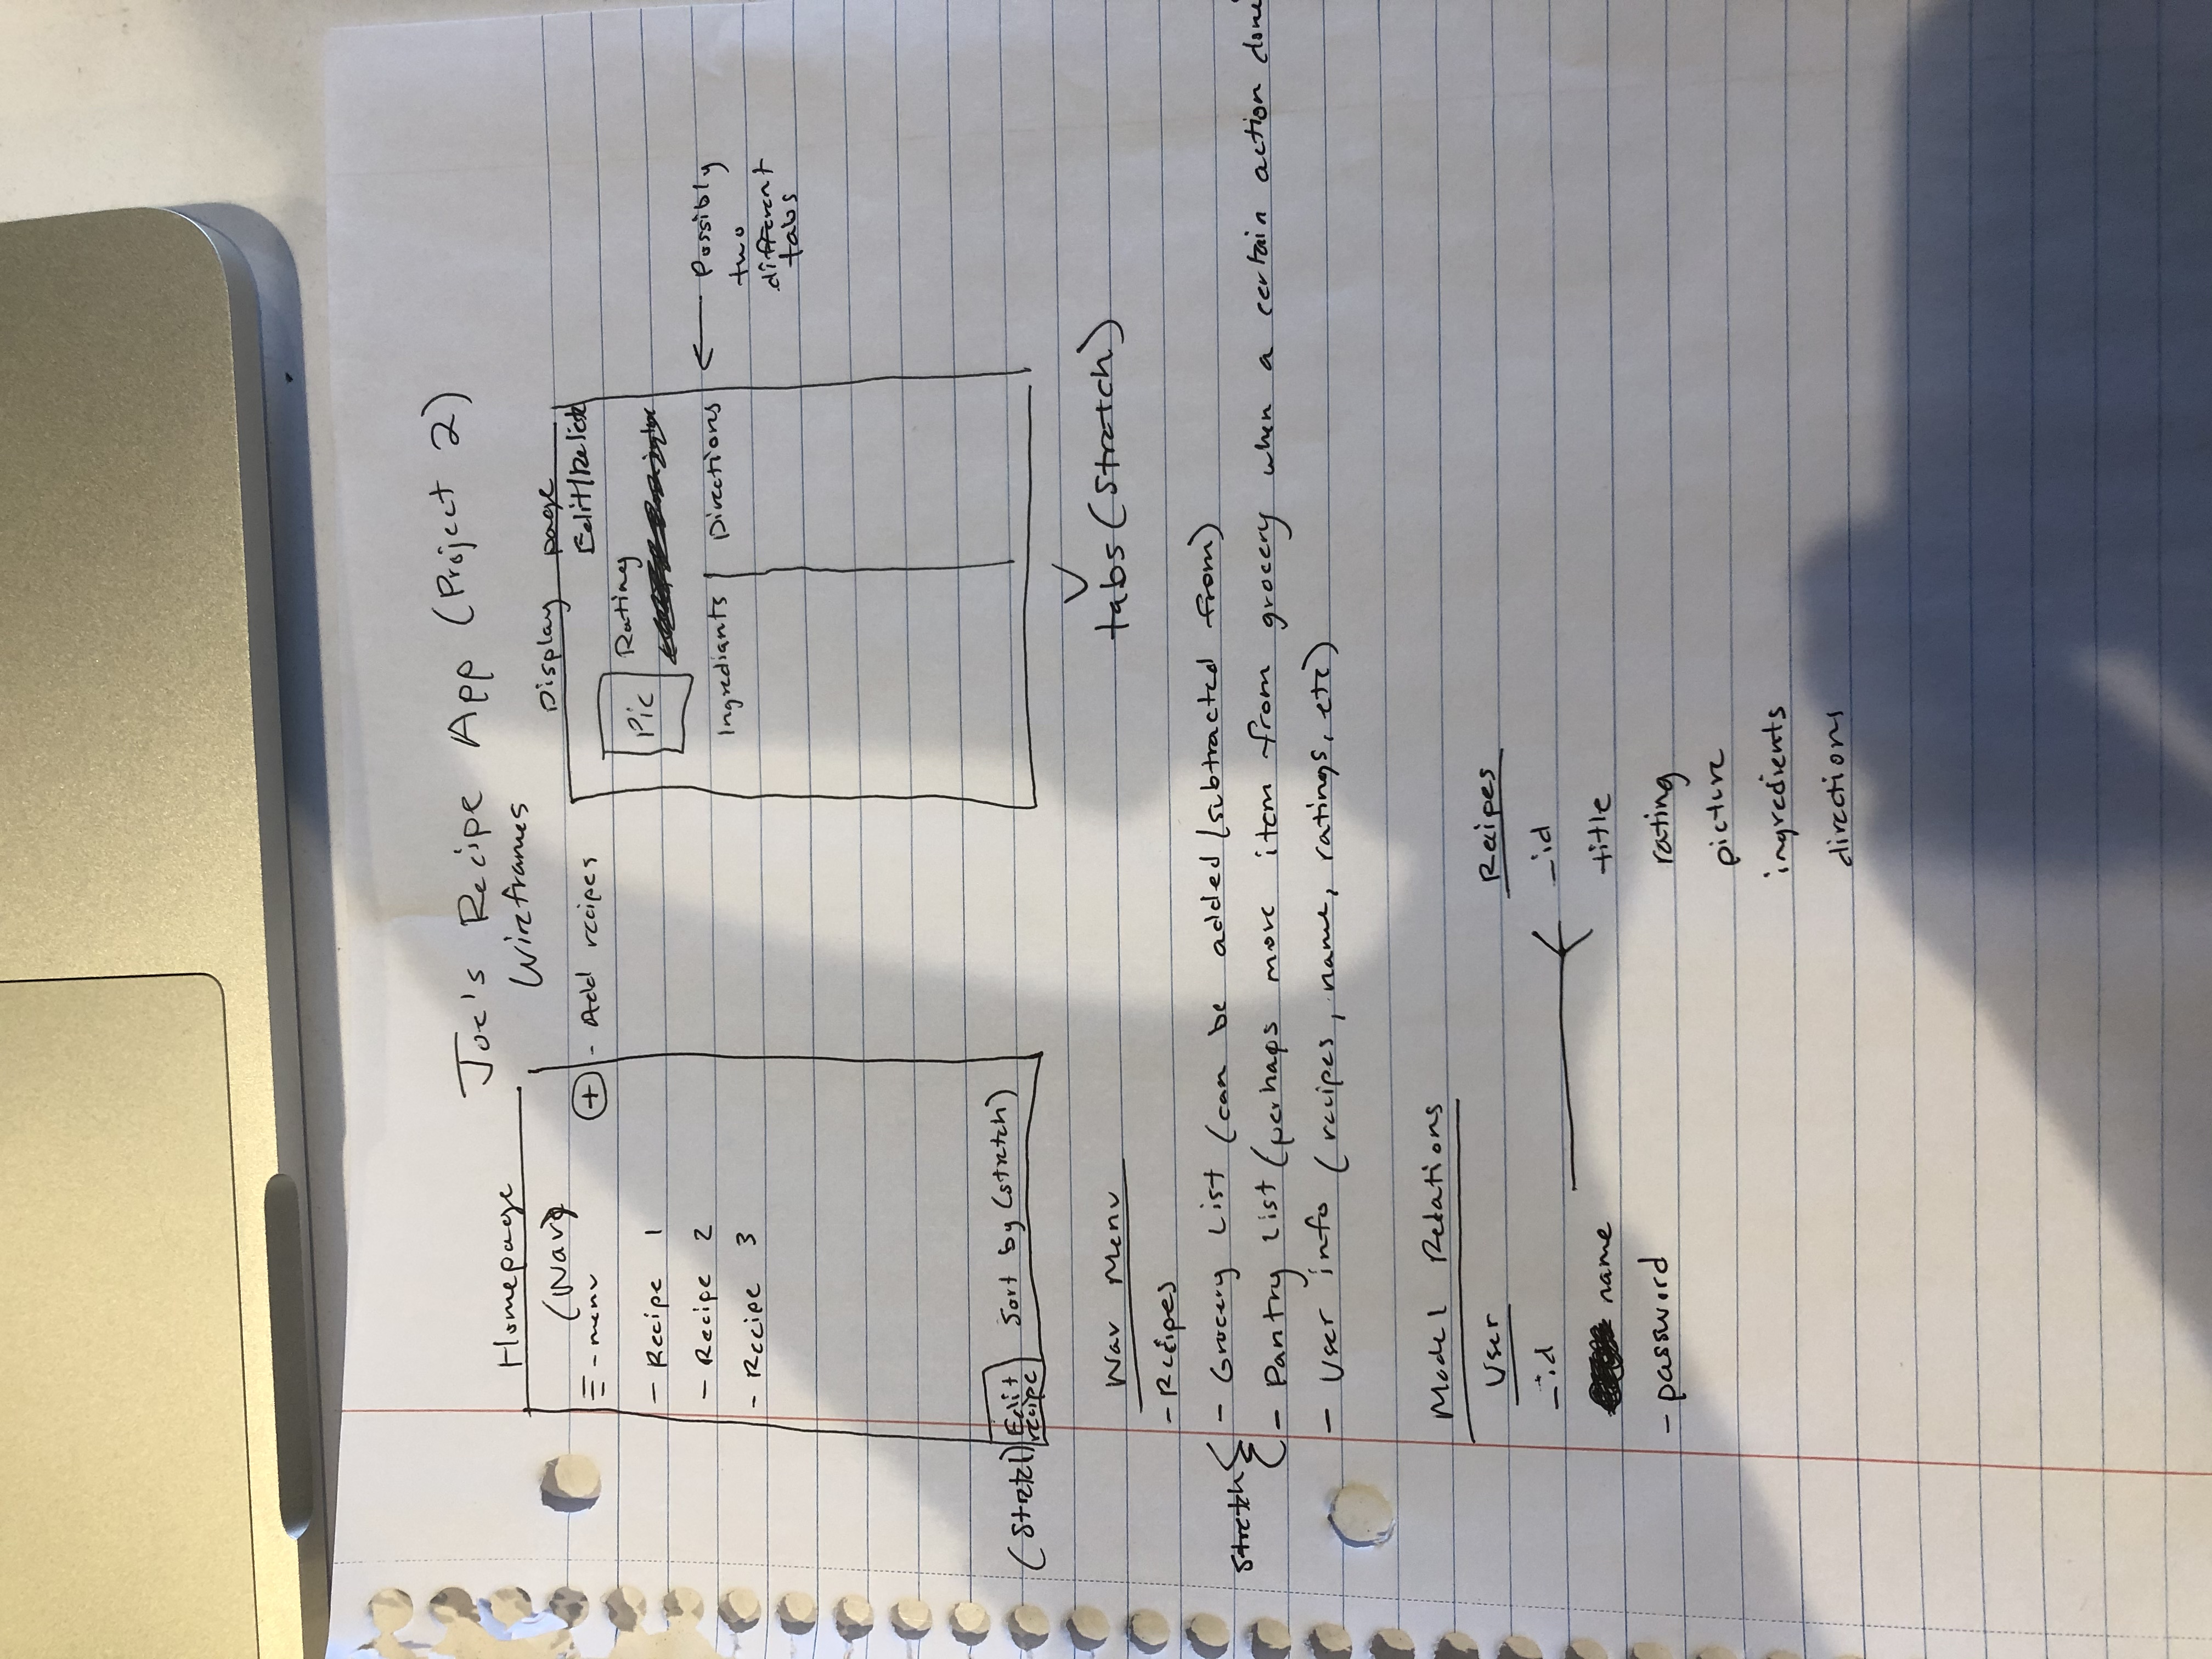 Joe's Recipe App (Project 2)
Wireframes
Homepage
(Nav)
- menu
+ - Add recipes
- Recipe 1
- Recipe 2
- Recipe 3
(Stretch) Edit recipe Sort by (stretch)
Display page
Edit/Delete
Pic Rating
Ingrediants Directions
Possibly
two
different
tabs
tabs (stretch)
Nav Menu
- Recipes
Stretch
- Grocery List (can be added/subtracted from)
- Pantry List (perhaps move item from grocery when a certain action done
- User info (recipes, name, ratings, etc)
Model Relations
User
_id
name
- password
Recipes
_id
title
rating
picture
ingredients
directions